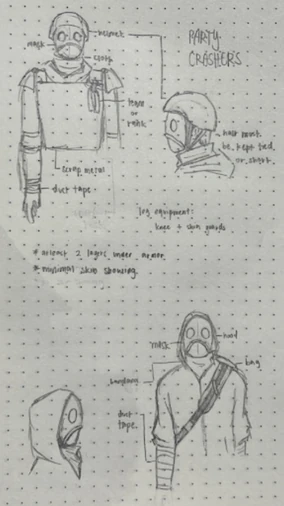 PARTY
CRASHERS
helmet
mask
scarf
name
or
rank
scrap metal
duct tape
hair must
be kept tied
or short.
leg equipment:
knee + shin guards
* atleast 2 layers under armor
* minimal skin showing
hood
mask
bag
bandana
duct
tape.